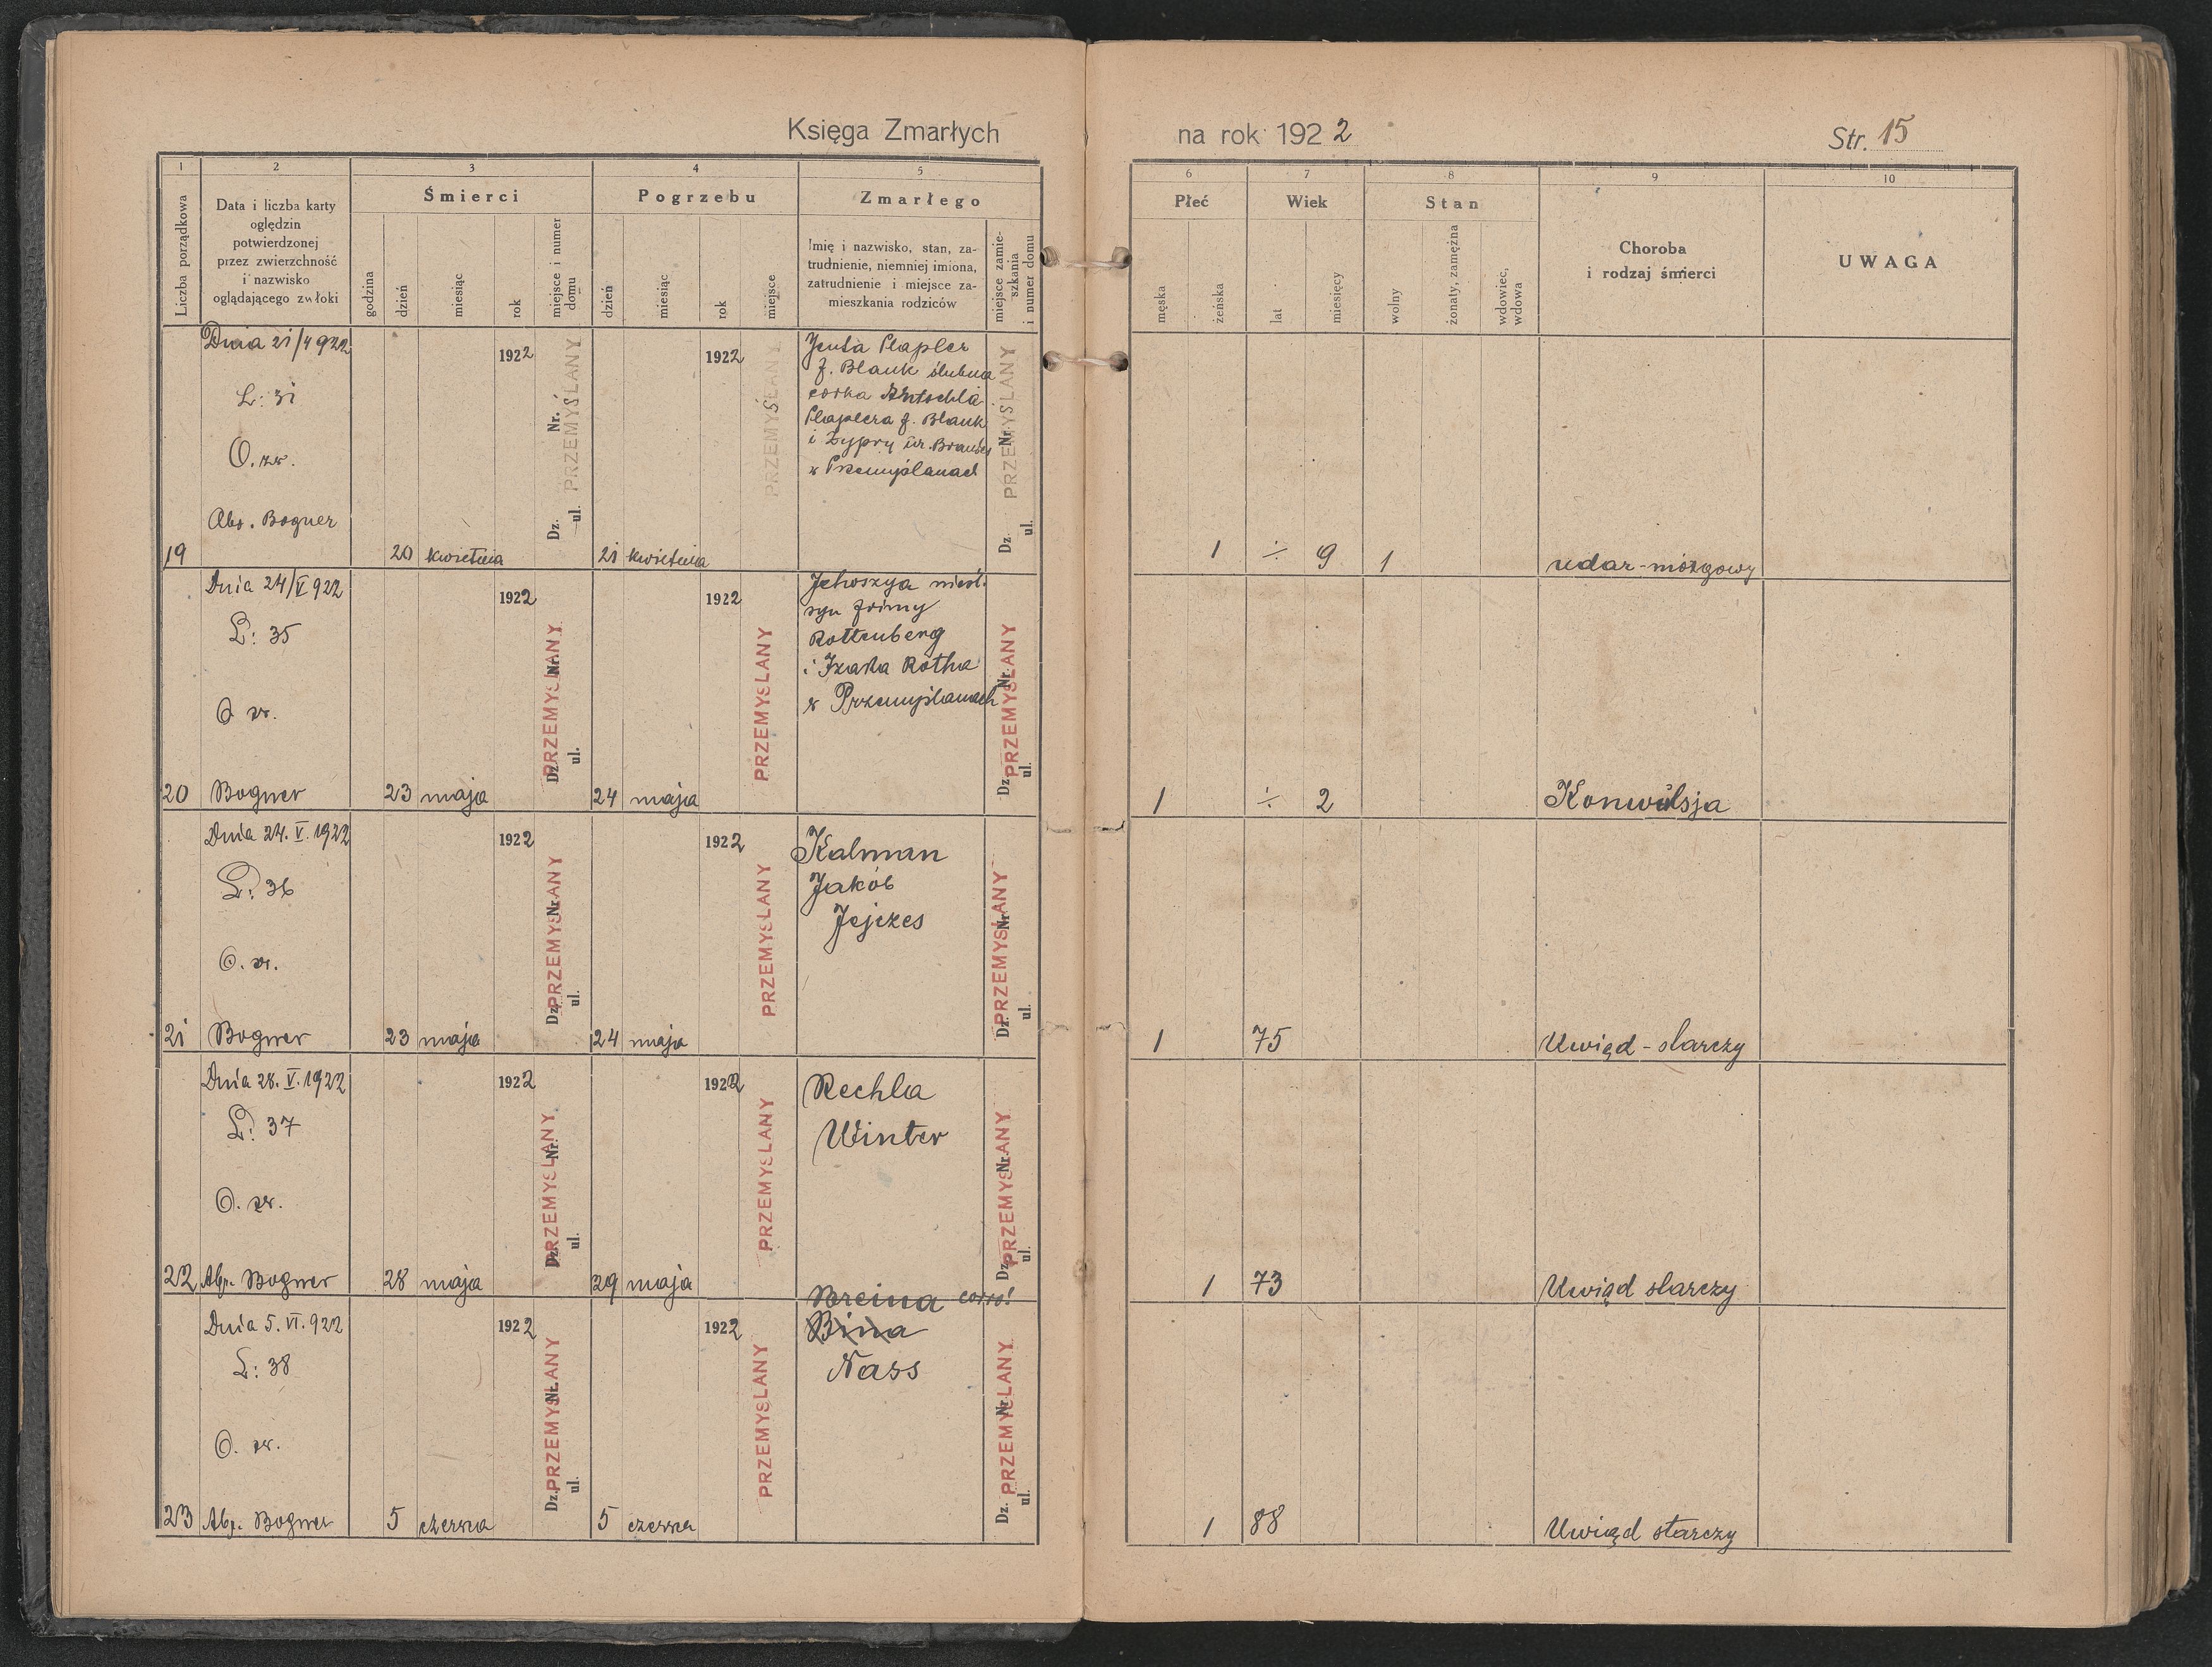 Księga Zmarłych
na rok 1922
Str. 15
1
2
3
4
5
6
7
8
9
10
Liczba porządkowa
Data i liczba karty
oględzin
potwierdzonej
przez zwierzchność
i nazwisko
oglądającego zwłoki
Śmierci
godzina
dzień
miesiąc
rok
miejsce i numer
domu
Pogrzebu
dzień
miesiąc
rok
miejsce
Zmarłego
Imię i nazwisko, stan, za-
trudnienie, niemniej imiona,
zatrudnienie i miejsce za-
mieszkania rodziców
miejsce zamie-
szkania
i numer domu
Płeć
męska
żeńska
Wiek
lat
miesięcy
Stan
wolny
żonaty, zamężna
wdowiec,
wdowa
Choroba
i rodzaj śmierci
UWAGA
19
Dnia 21/4 922
L: 31
O. zw.
Abr. Bogner
20 kwietnia 1922
Dz. Nr.
ul.
PRZEMYŚLANY
21 kwietnia 1922
PRZEMYŚLANY
Jenta Plapler
f. Blauk ślubna
córka
Plaplera f. Blauk
i Zypry ur.
w Przemyślanach
Dz. Nr.
ul.
PRZEMYŚLANY
1 ÷ 9 1
udar-mózgowy
20
Dnia 24/V 922
L: 35
O zw.
Bogner
23 maja 1922
Dz. Nr.
ul.
PRZEMYSLANY
24 maja 1922
PRZEMYSLANY
Jehoszya nieśl.
syn Frimy
Rottenberg
i Izaka Rotha
w Przemyślanach
Dz. Nr.
ul.
PRZEMYSLANY
1 ÷ 2
Konwulsja
21
Dnia 24. V. 1922
L: 36
O. zw.
Bogner
23 maja 1922
Dz. Nr.
ul.
PRZEMYSLANY
24 maja 1922
PRZEMYSLANY
Kalman
Jakób
Jejzes
Dz. Nr.
ul.
PRZEMYSLANY
1 75
Uwiąd-starczy
22
Dnia 28. V. 1922
L: 37
O. zw.
Abr. Bogner
28 maja 1922
Dz. Nr.
ul.
PRZEMYSLANY
29 maja 1922
PRZEMYSLANY
Rechla
Winter
Dz. Nr.
ul.
PRZEMYSLANY
1 73
Uwiąd starczy
23
Dnia 5. VI. 922
L: 38
O. zw.
Abr. Bogner
5 czerwca 1922
Dz. Nr.
ul.
PRZEMYSLANY
5 czerwca 1922
PRZEMYSLANY
Breina corr!
Bina
Nass
Dz. Nr.
ul.
PRZEMYSLANY
1 88
Uwiąd starczy